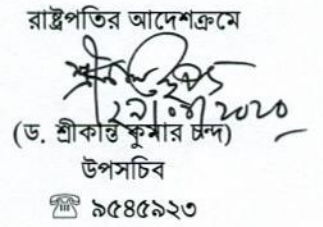 রাষ্ট্রপতির আদেশক্রমে
(ড. শ্রীকান্ত কুমার চন্দ)
উপসচিব
☎ ৯৫৪৫৯২৩